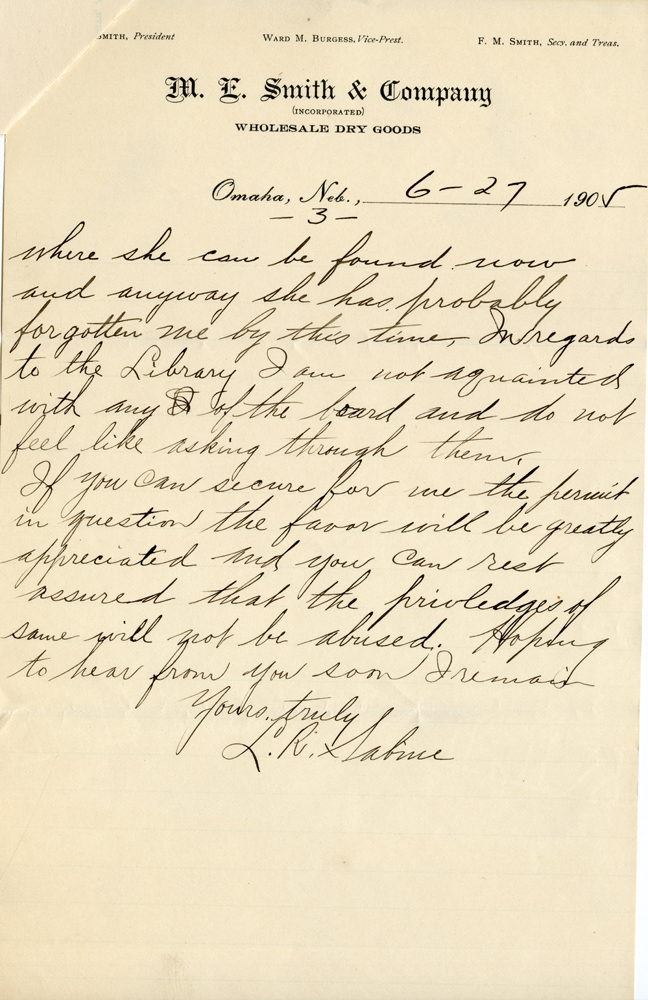 SMITH, President WARD M. BURGESS, Vice-Prest. F. M. SMITH, Secy. and Treas.
M. E. Smith & Company
(INCORPORATED)
WHOLESALE DRY GOODS
Omaha, Neb., 6-27 1905
- 3 -
where she can be found now
and anyway she has probably
forgotten me by this time. In regards
to the Library I am not aquainted
with any of the board and do not
feel like asking through them.
If you can secure for me the permit
in question the favor will be greatly
appreciated and you can rest
assured that the priviledges of
same will not be abused. Hoping
to hear from you soon I remain
Yours, truly
L. R. Sabine